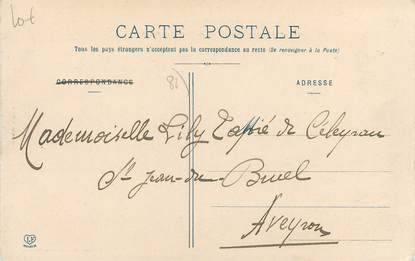 Lot
CARTE POSTALE
Tous les pays étrangers n'acceptent pas la correspondance au recto (Se renseigner à la Poste)
CORRESPONDANCE
ADRESSE
81
Mademoiselle Lily Tapié de Céleyran
St Jean-du-Bruel
Aveyron